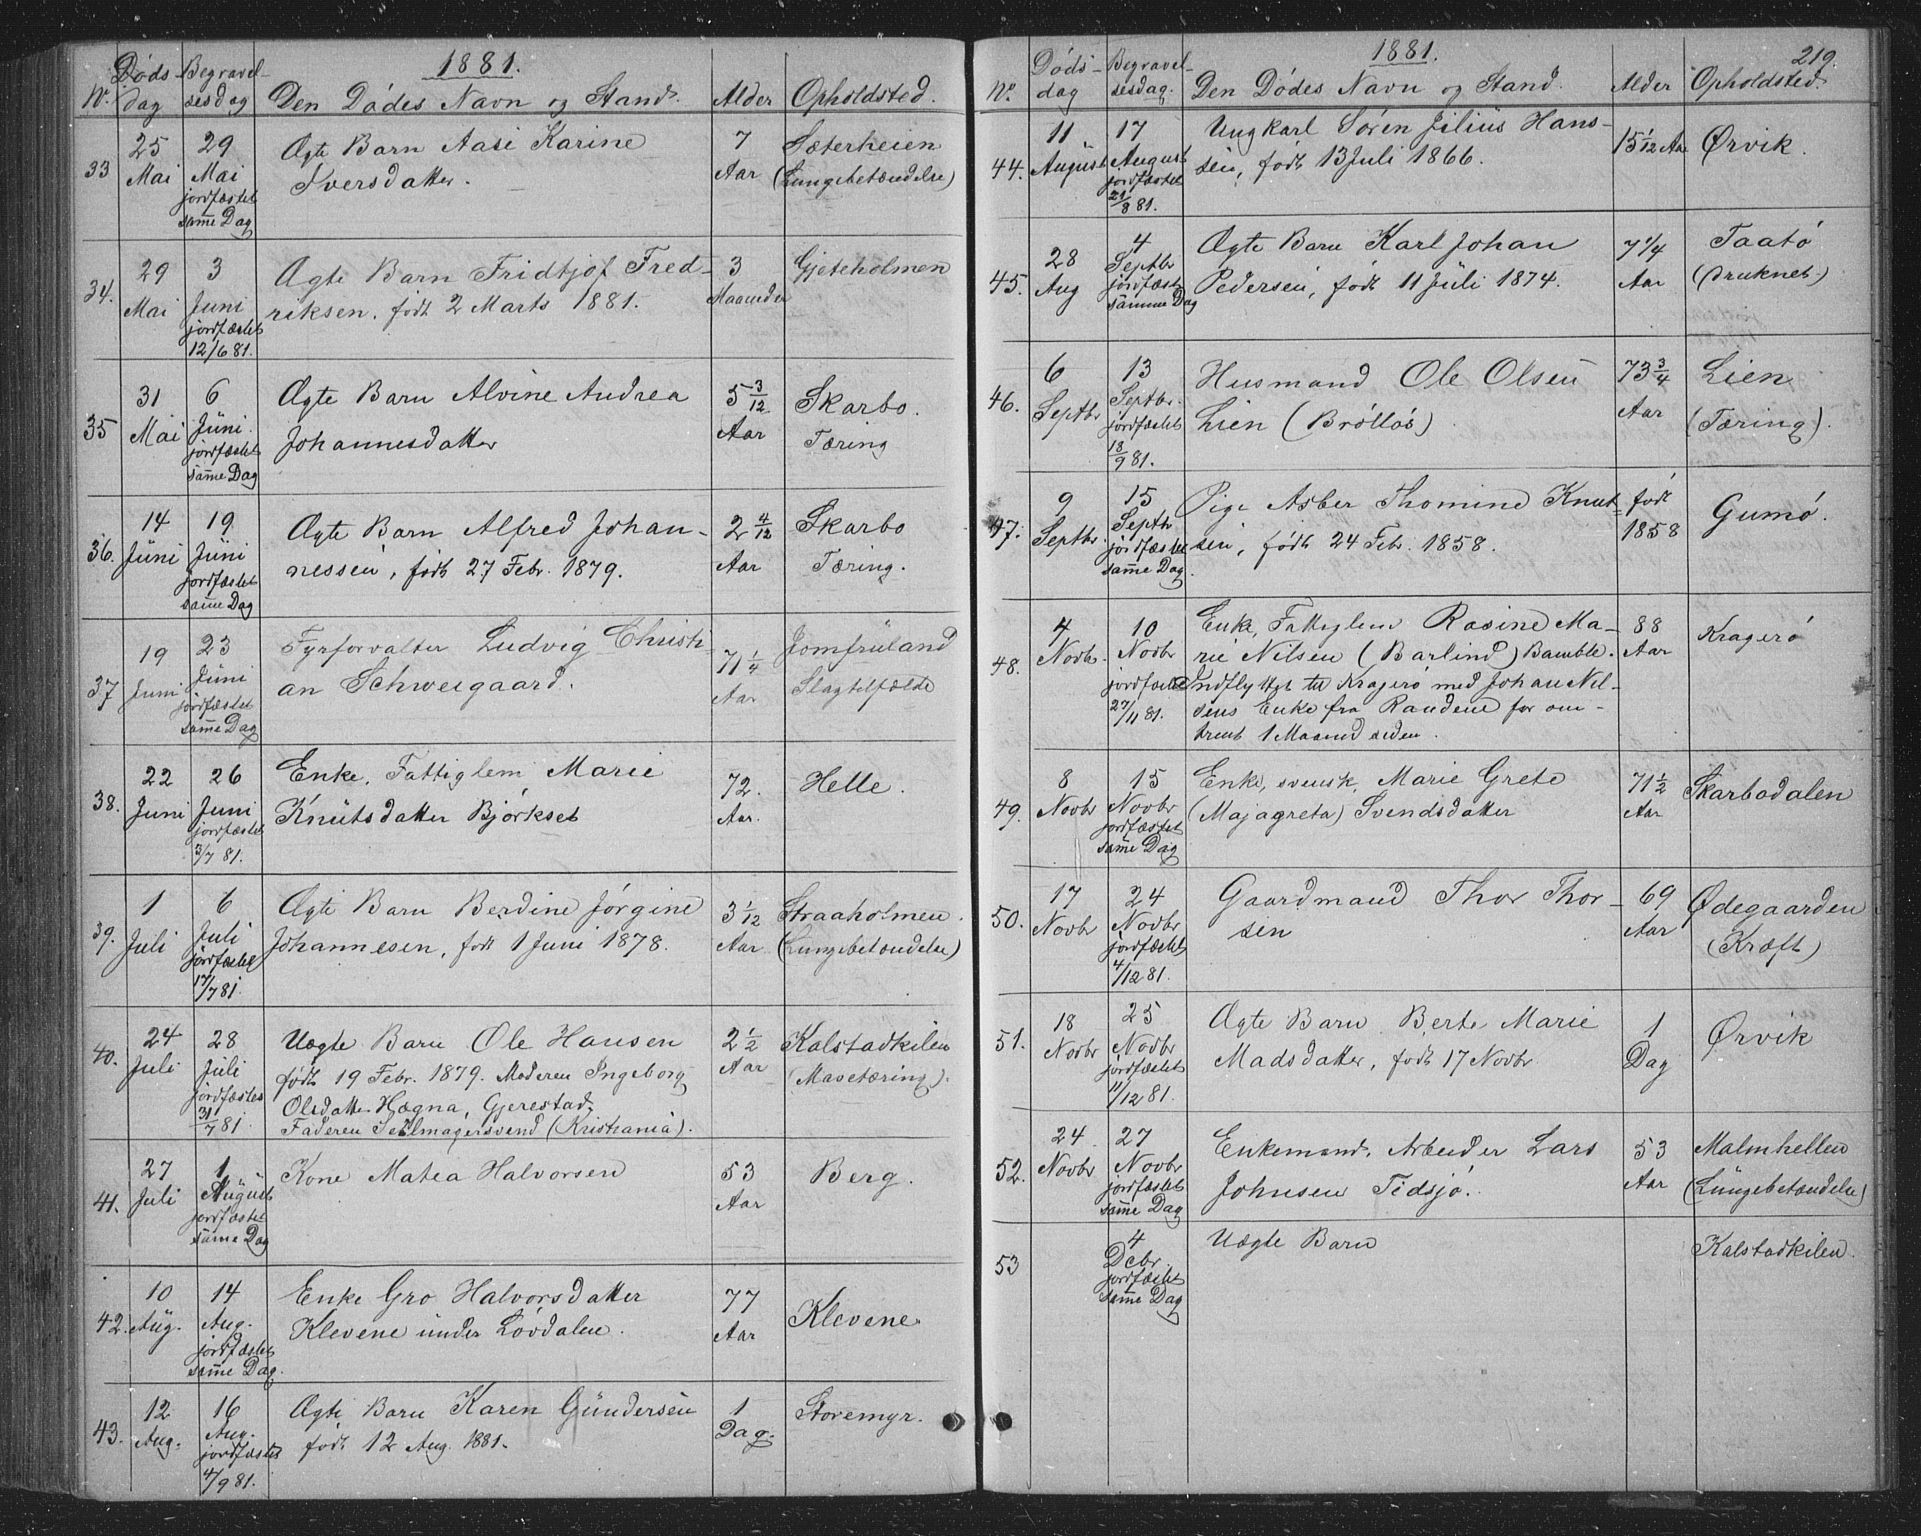 1881.
No. Døds- dag Begravel- sesdag Den Dødes Navn og Stand. Alder Opholdsted.
33 25 Mai 29 Mai jordfæstet samme Dag Ægte Barn Aase Karine 7 Aar Sæterheien
Iversdatter. (Lungebetændelse)
34. 29 Mai 3 Juni jordfæstet 12/6 81. Ægte Barn Fridtjof Fred- 3 Maaneder Gjeteholmen
riksen, født 2 Marts 1881.
35 31 Mai 6 Juni jordfæstet samme Dag Ægte Barn Alvine Andrea 5 3/12 Aar Skarbo.
Johannesdatter Tæring
36. 14 Juni 19 Juni jordfæstet samme Dag Ægte Barn Alfred Johan- 2 4/12 Aar Skarbo
nessen, født 27 Febr. 1879. Tæring.
37 19 Juni 23 Juni jordfæstet samme Dag Fyrforvalter Ludvig Christi- 71 1/4 Aar Jomfruland
an Schweigaard. Slagtilfælde
38. 22 Juni 26 Juni jordfæstet 3/7 81. Enke, Fattiglem Marie 72. Aar. Helle.
Knutsdatter Bjørkset
39. 1 Juli 6 Juli jordfæstet 17/7 81. Ægte Barn Berdine Jørgine 3 1/12 Aar Straaholmen.
Johannesen, født 1 Juni 1878. (Lungebetændelse)
40. 24 Juli 28 Juli jordfæstes 31/7 81. Uægte Barn Ole Hansen 2 1/2 Aar Kalstadkilen
født 19 Febr. 1879. Moderen Ingeborg (Mavetæring).
Olsdatter Hægna, Gjerestad,
Faderen Seilmagersvend (Kristiania).
41. 27 Juli 1 August jordfæstet samme Dag Kone Matea Halvorsen 53 Aar Berg.
42. 10 Aug. 14 Aug. jordfæstet samme Dag. Enke Gro Halvorsdatter 77 Aar Klevene.
Klevene under Løvdalen.
43. 12 Aug. 16 Aug. jordfæstet 4/9 81. Ægte Barn Karen Gundersen 1 Dag. Storemyr.
født 12 Aug. 1881.
1881. 219.
No. Døds- dag Begravel- sesdag. Den Dødes Navn og Stand. Alder Opholdsted.
44. 11 August 17 August jordfæstet 21/8 81. Ungkarl Søren Julius Han- 15 1/12 Aar Ørvik.
sen, født 13 Juli 1866.
45. 28 Aug 4 Septbr jordfæstet samme Dag Ægte Barn Karl Johan 7 1/4 Aar Taatø
Pedersen, født 11 Juli 1874. (Druknet)
46. 6 Septbr 13 Septbr. jordfæstet 18/9 81. Husmand Ole Olsen 73 3/4 Aar Lien
Lien (Brølløs) (Tæring).
47. 9 Septbr. 15 Septbr jordfæstet samme Dag. Pige Asber Thomine Knut- født 1858 Gumø.
sen, født 24 Febr. 1858.
48. 4 Novbr. 10 Novbr jordfæstet 27/11 81. Enke, Fattiglem Rasine Ma- 88 Aar Kragerø
rie Nilsen (Barlind) Bamble.
Indflyttet til Kragerø med Johan Nil-
sens Enke fra Randene for om-
trent 1 Maaned siden.
49. 8 Novbr 15 Novbr jordfæstet samme Dag Enke, svensk, Marie Grete 71 1/2 Aar Skarbodalen
(Majagreta) Svendsdatter
50. 17 Novbr 24 Novbr jordfæstet 4/12 81. Gaardmand Thor Thor- 69 Aar Ødegaarden
sen (Kræft)
51. 18 Novbr 25 Novbr jordfæstet 11/12 81. Ægte Barn Berte Marie 1 Dag Ørvik
Madsdatter, født 17 Novbr.
52. 24 Novbr 27 Novbr jordfæstet samme Dag Enkemand, Arbeider Lars 53 Aar Malmhellen
Johnsen Tidsjø. (Lungebetændelse)
53 4 Decbr. jordfæstet samme Dag Uægte Barn Kalstadkilen.